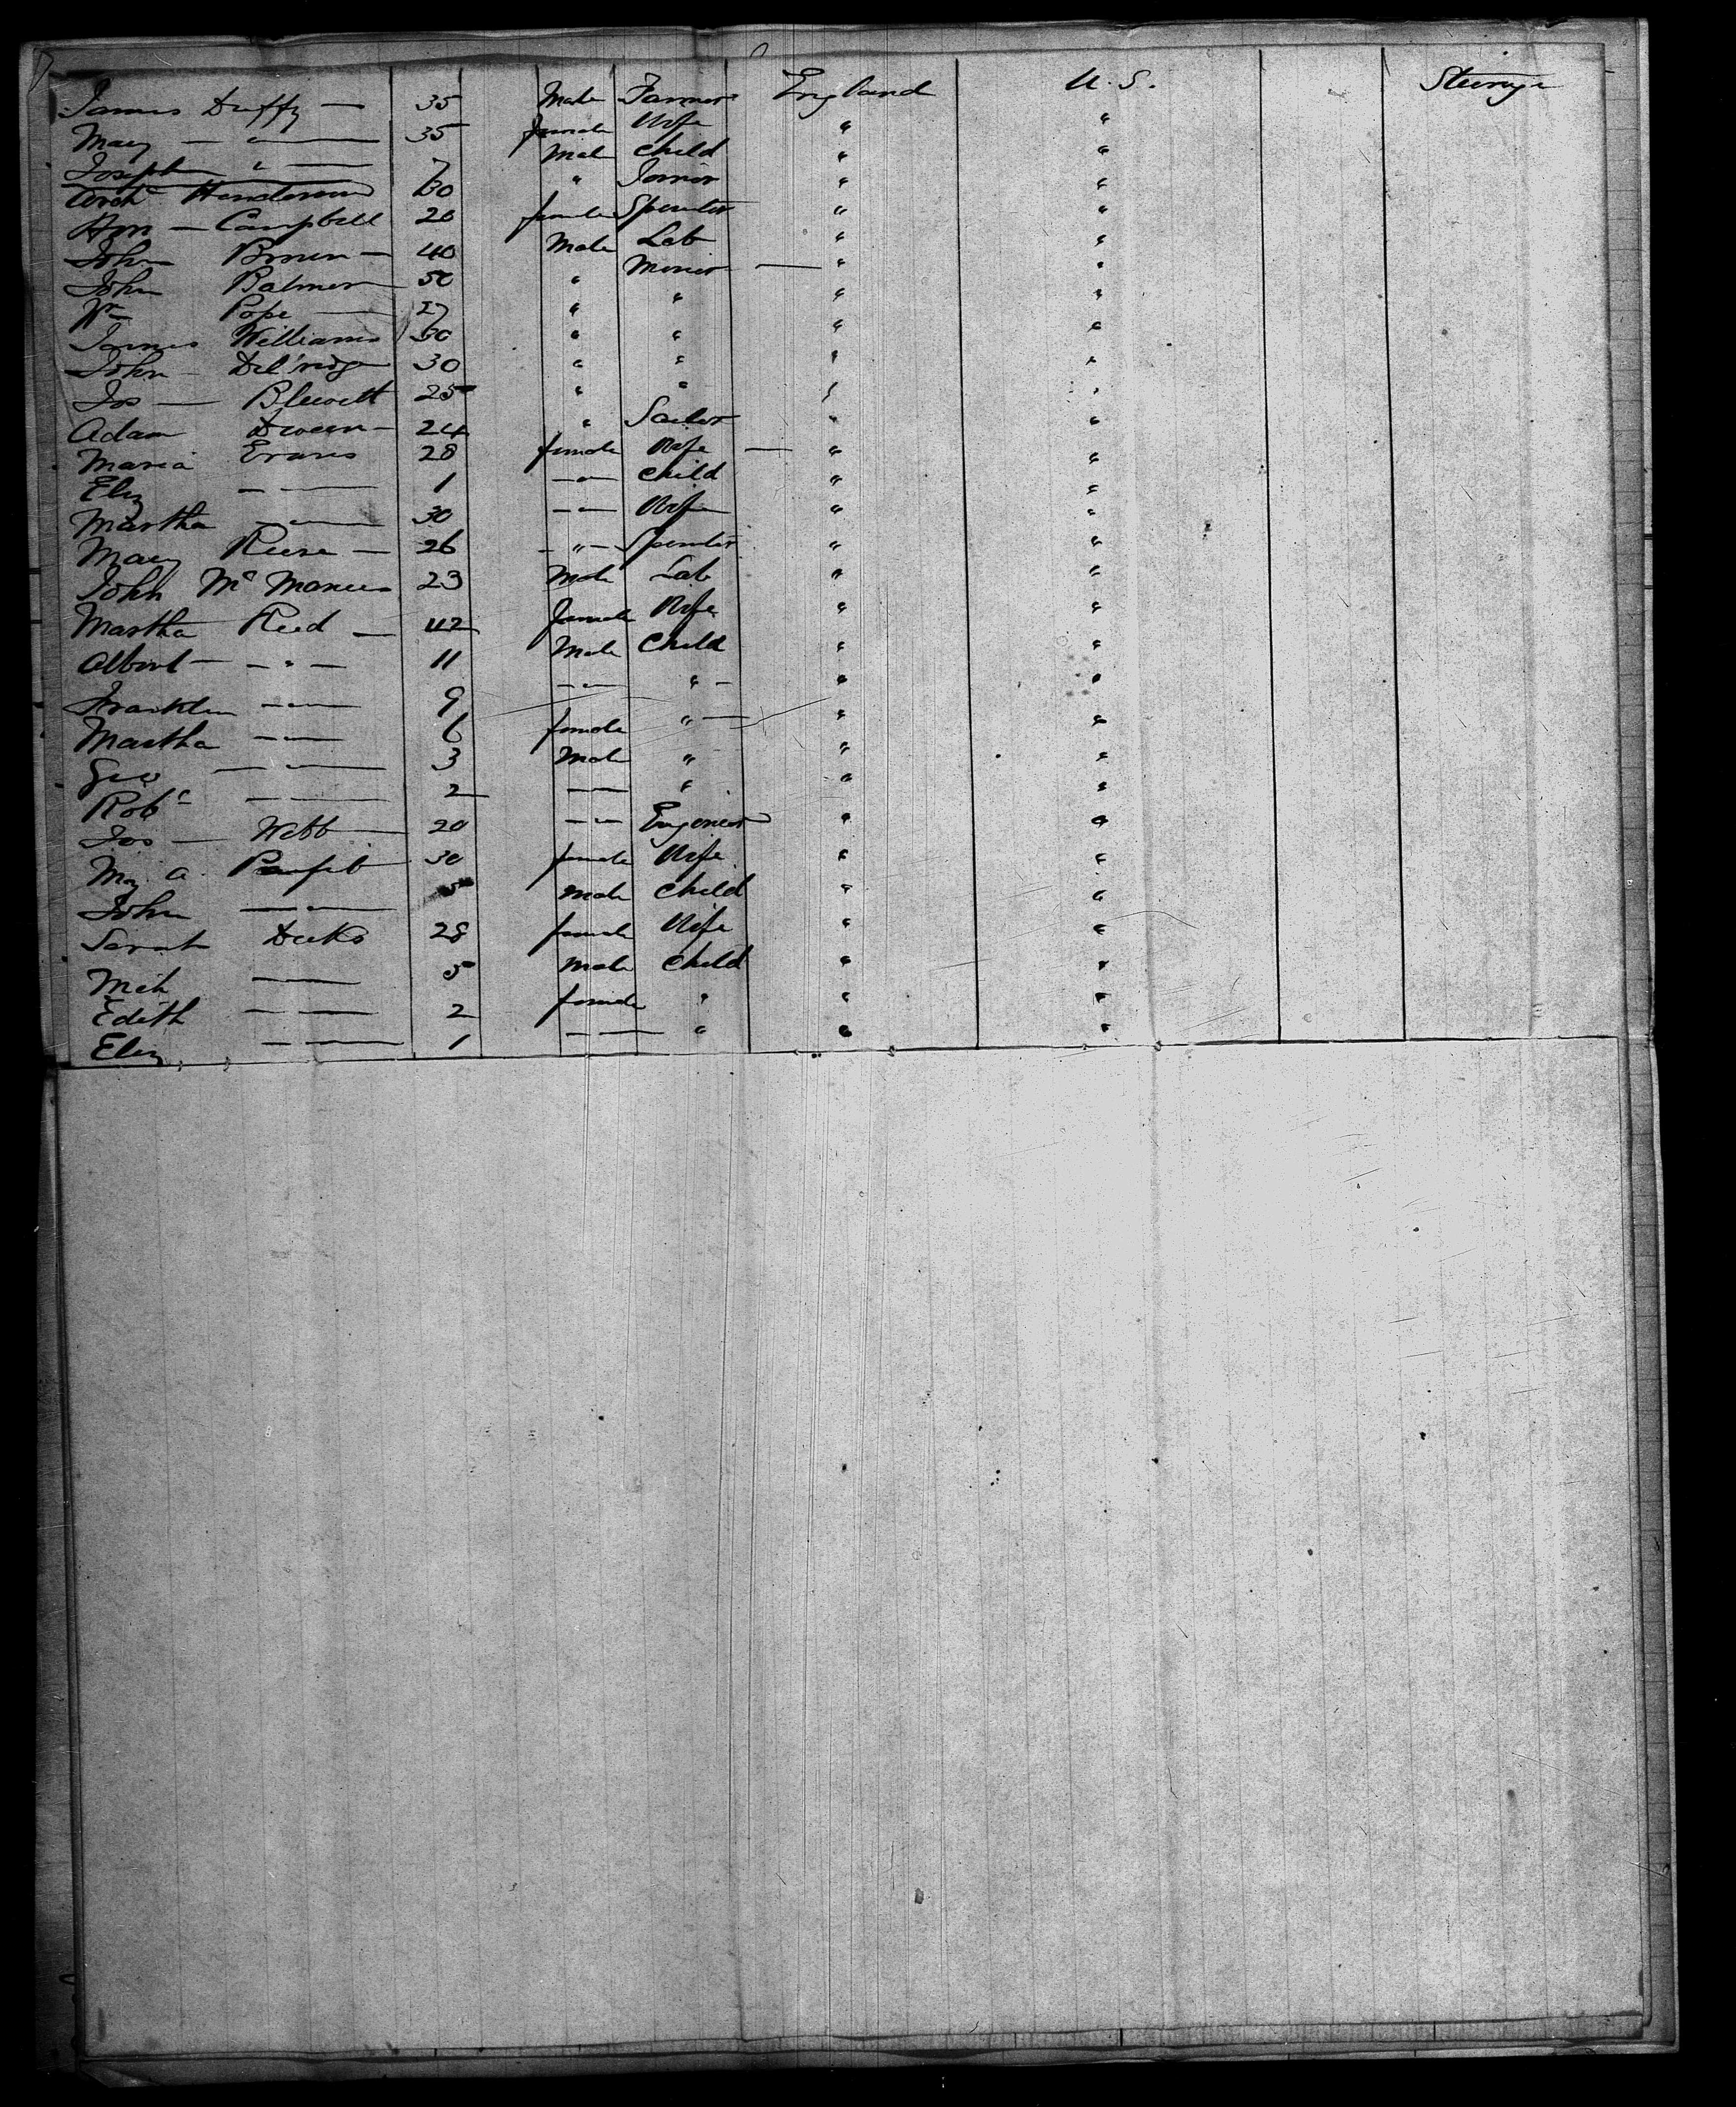 James Duffy — 35 Male Farmer England U.S. Steerage
Mary — " — 35 female Wife " "
Joseph " — 7 Male Child " "
Arch Henderson 30 " Joiner " "
Ann — Campbell 20 female Spinster " "
John Brown — 40 Male Lab " "
John Palmer 50 " Miner — " "
Wm Pope — 27 " " " "
James Williams 30 " " " "
John 30 " " " "
Jos — Blewett 25 " " " "
Adam 24 " Sailor " "
Maria Evans 28 female Wife — " "
Eliz — — 1 — " — Child " "
Martha — " — 30 — " — Wife " "
Mary Reese — 26 — " — Spinster " "
John Mc Manus 23 Male Lab " "
Martha Reed — 42 female Wife " "
Albert — — " — 11 Male Child " "
Franklin — " — 9 — " — " — " "
Martha — " — 6 female " — " "
Geo — " — 3 Male " " "
Robt — — 2 — — " " "
Jos — Webb — 20 — " — Engineer " "
My. A. 30 female Wife " "
John — " — 5 male Child " "
Sarah Deeks 28 female Wife " "
— — 5 male Child " "
Edith — — 2 female " " "
Eliz — — 1 — — " " "